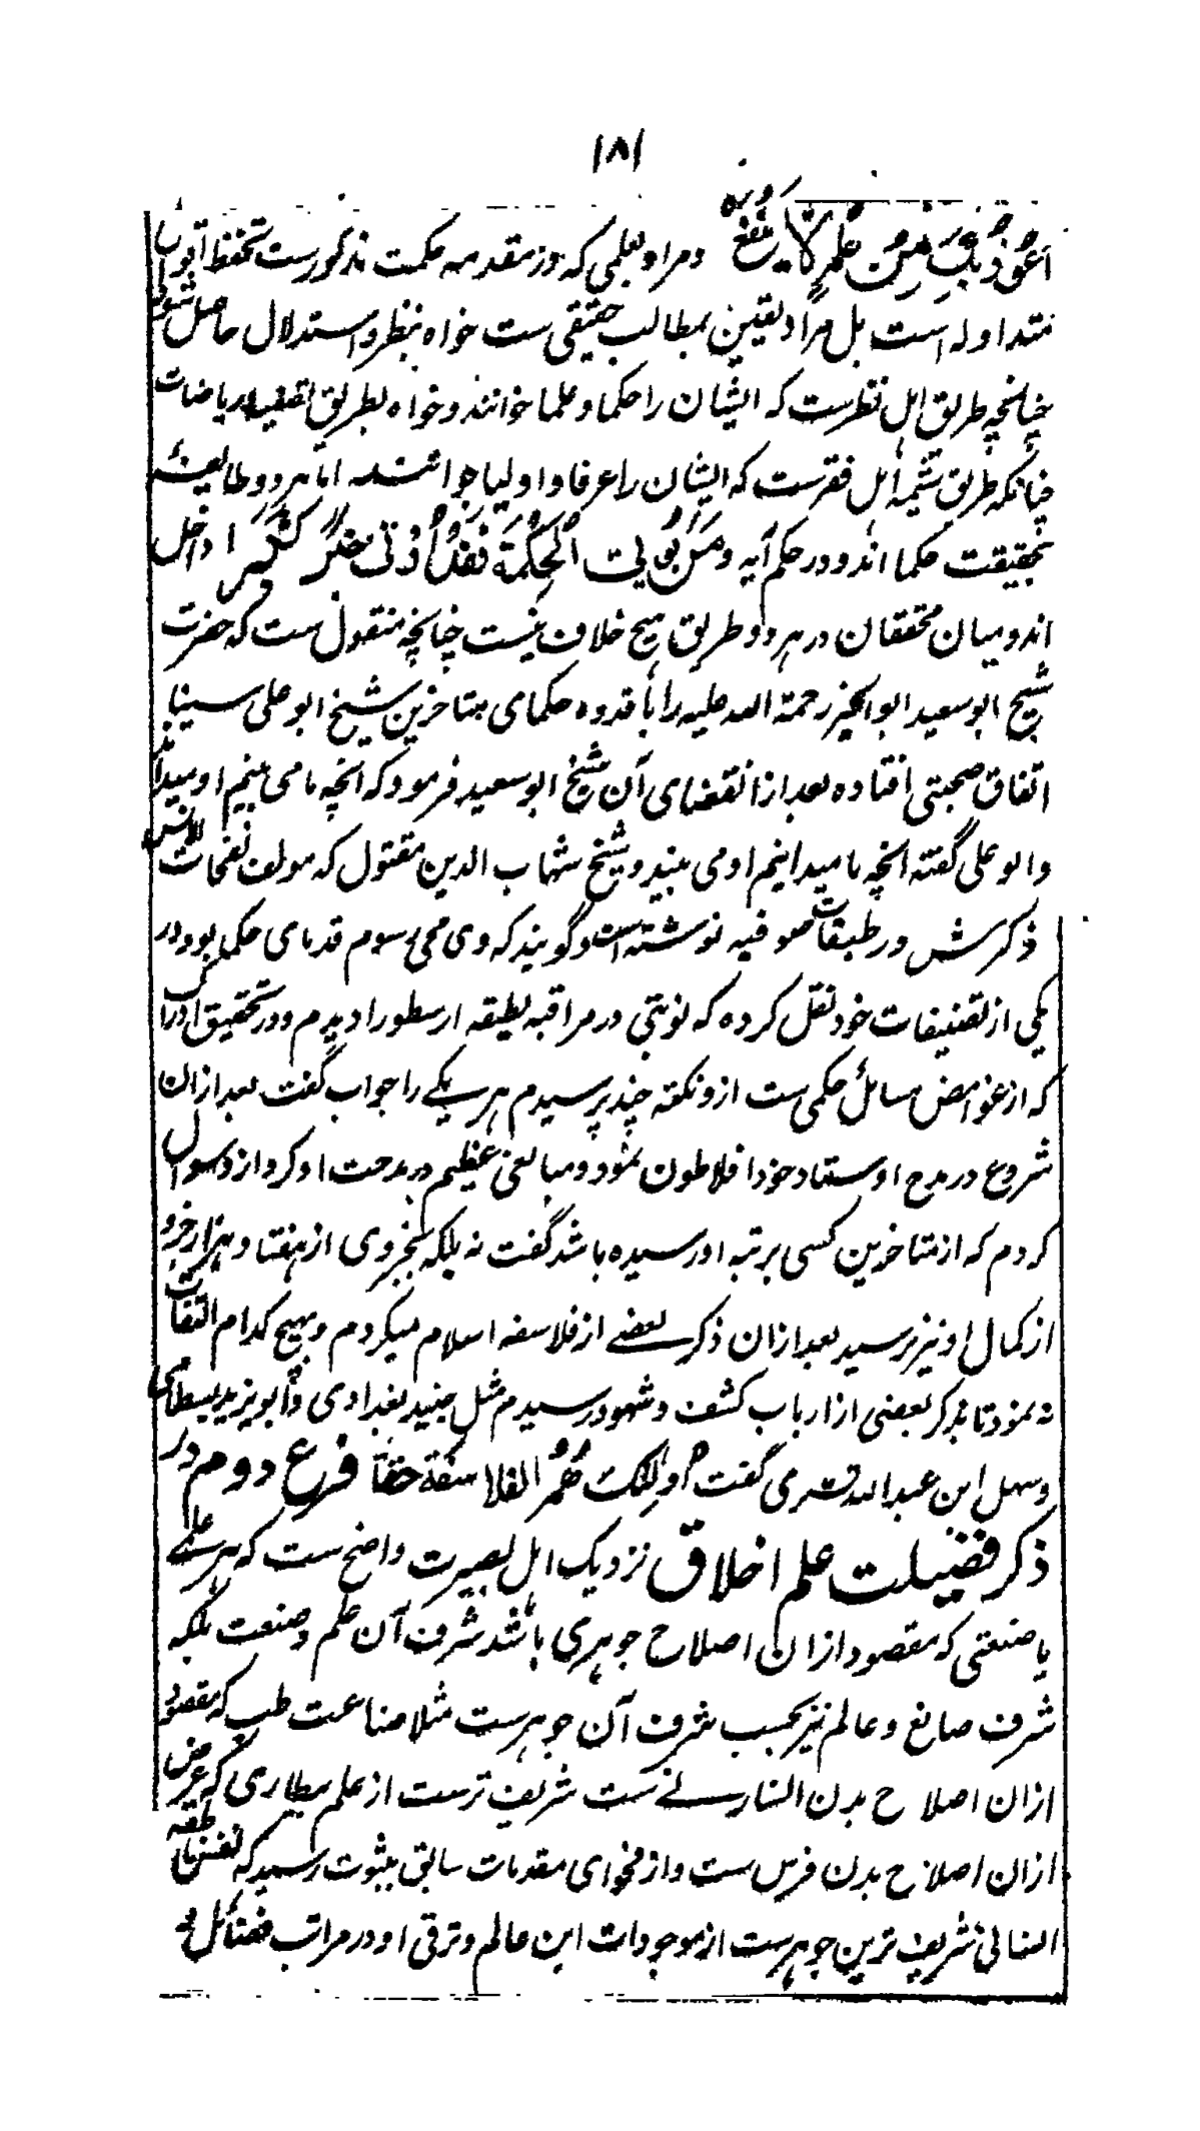 ۱۸۱
اَعُوْذُ بِكَ مِنْ عِلْمٍ لَا يَنْفَعُ و مراد بعلمی که در مقدمه حکمت مذکورست تحفظ اقوال
متداوله است بل مراد یقین بمطالب حقیقی ست خواه بنظر و استدلال حاصل شود
چنانچه طریق اہل نظرست که ایشان را حکما و علما خوانند و خواه بطریق تصفیه و ریاضات
چنانکه طریق شیمه اہل فقرست که ایشان را عرفا و اولیا خوانند اما ہر دو طایفه
بحقیقت حکما اند و در حکم آیه وَمَنْ يُّؤْتَ الْحِكْمَةَ فَقَدْ اُوْتِيَ خَيْرًا كَثِيْرًا داخل
اند و میان محققان در ہر دو طریق ہیچ خلاف نیست چنانچه منقول ست که حضرت
شیخ ابو سعید ابو الخیر رحمة الله علیه را با قدوه حکمای متاخرین شیخ ابو علی سینا
اتفاق صحبتی افتاده بعد از انقضای آن شیخ ابو سعید فرمود که انچه ما می بینم او میداند
و ابو علی گفته انچه ما میدانیم او می بیند و شیخ شهاب الدین مقتول که مولف نفحات الانس
ذکرش در طبقات صوفیه نوشته است و گویند که وی محی رسوم قدمای حکما بود در
یکی از تصنیفات خود نقل کرده که نوبتی در مراقبه لطیفه ارسطو را دیدم و در تحقیق ادراک
که از غوامض مسائل حکمی ست از و نکته چند پرسیدم ہر یکے را جواب گفت بعد ازان
شروع در مدح اوستاد خود افلاطون نمود و مبالغی عظیم در مدحت او کرد از و سوال
کردم که از متاخرین کسی برتبه او رسیده باشد گفت نه بلکه بجزوی از ہفتاد ہزار جزو
از کمال او نیز نرسید بعد ازان ذکر بعضے از فلاسفه اسلام میکردم و بہیچ کدام التفات
نه نمود تا بذکر بعضی از ارباب کشف و شہود رسیدم مثل جنید بغدادی و ابو یزید بسطامی
و سهل ابن عبد الله تستری گفت اُولٰئِكَ هُمُ الْفَلَاسِفَةُ حَقًّا فرع دوم در
ذکر فضیلت علم اخلاق نزدیک اہل بصیرت واضح ست که ہر علمے
یا صنعتی که مقصود ازان اصلاح جوہری باشد شرف آن علم و صنعت بلکه
شرف صانع و عالم نیز بحسب شرف آن جوہرست مثلا صناعت طب که مقصود
ازان اصلاح بدن انسانے ست شریف ترست از علم بیطاری که غرض
ازان اصلاح بدن فرس ست و از فحوای مقدمات سابق بثبوت رسید که نفس ناطقه
انسانی شریف ترین جوہرست از موجودات این عالم و ترقی او در مراتب فضائل